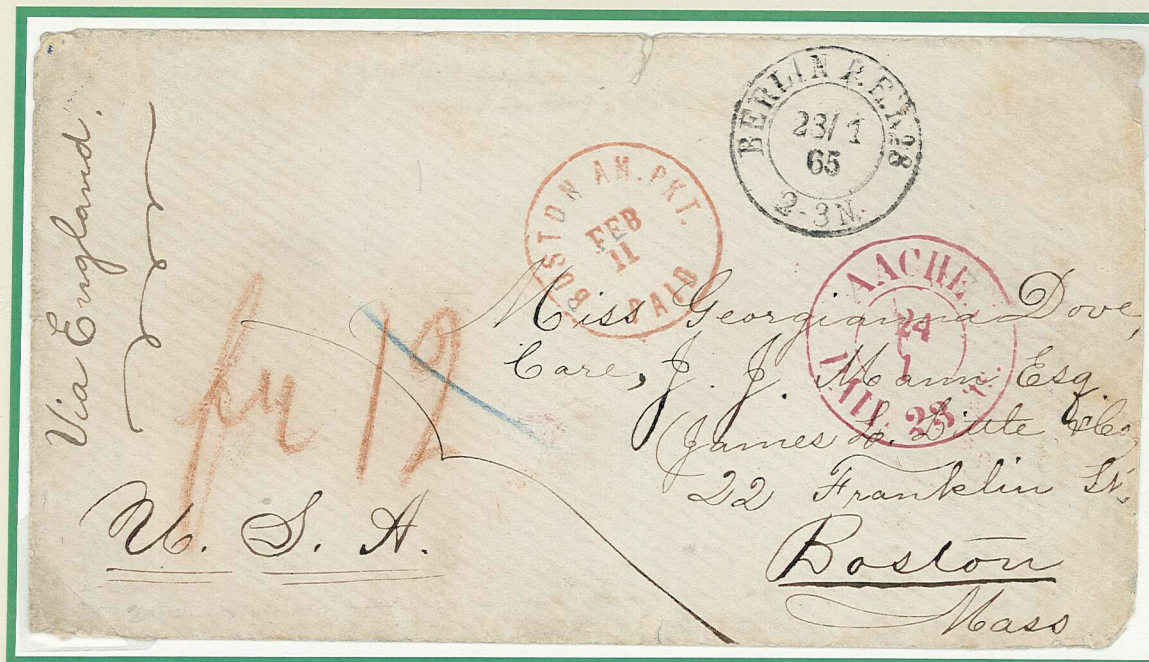 Via England.
BERLIN P.E. № 28
23/1
65
2-3 N.
BOSTON AM. PKT.
FEB
11
PAID
AACHEN
24
1
Miss Georgianna Dove,
Care, J. J. Mann Esq
(James L. Little & Co
22 Franklin St.
Boston
Mass
12
U. S. A.